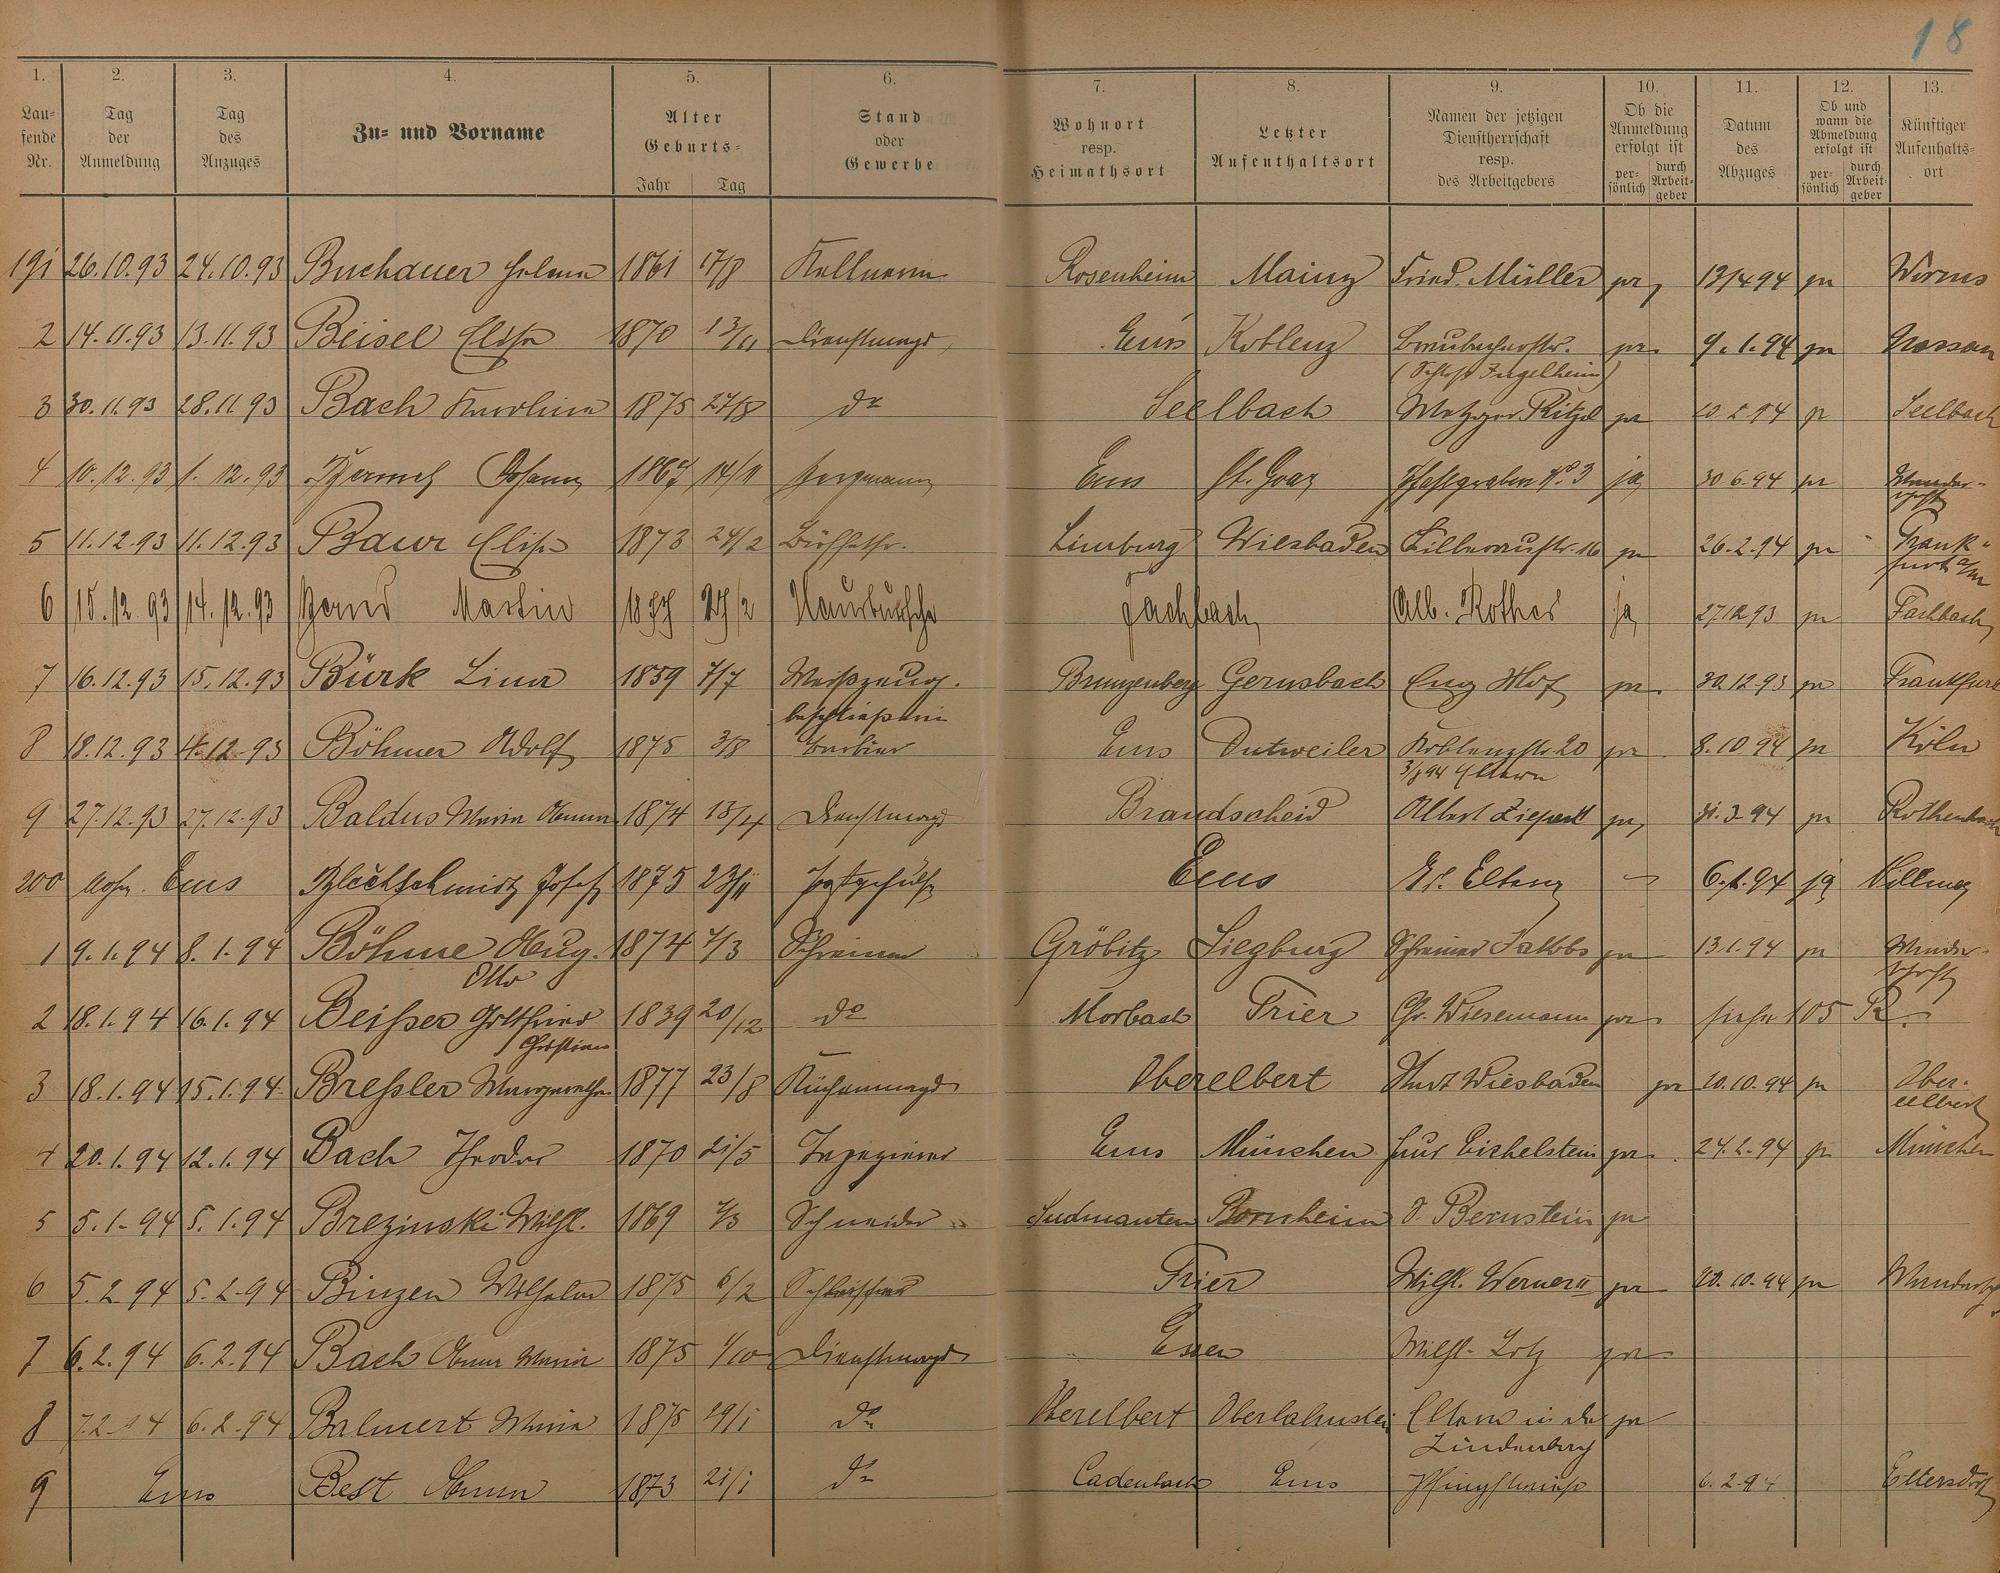 18
1. 2. 3. 4. 5. 6. 7. 8. 9. 10. 11. 12. 13.
Lau-
fende
Nr.
Tag
der
Anmeldung
Tag
des
Anzuges
Zu- und Vorname
Alter
Geburts-
Jahr Tag
Stand
oder
Gewerbe
Wohnort
resp.
Heimathsort
Letzter
Aufenthaltsort
Namen der jetzigen
Dienstherrschaft
resp.
des Arbeitgebers
Ob die
Anmeldung
erfolgt ist
per-
sönlich
durch
Arbeit-
geber
Datum
des
Abzuges
Ob und
wann die
Abmeldung
erfolgt ist
per-
sönlich
durch
Arbeit-
geber
Künftiger
Aufenthalts-
ort
191 26.10.93 24.10.93 Buchauer 1861 17/8 Kellnerin Rosenheim Mainz Fried. Müller 13/4 94 Worms
2 14.11.93 13.11.93 Beisel Elise 1870 13/11 Dienstmagd Ems Koblenz Braubacherstr. 9.1.94 Nassau
(Schloß Ingelheim)
3 30.11.93 28.11.93 Bach Karolina 1875 27/8 do Seelbach Metzger Ritzel Seelbach
4 10.12.93 1.12.93 Johann 1867 14/11 Bergmann Ems St. Goar Pfahlgraben No 3 ja 30.6.94 Wander-
schaft
5 11.12.93 11.12.93 Baur Elise 1873 24/2 Limburg Wiesbaden Silberaustr. 16 26.2.94 Frank-
furt a/m
6 15.12.93 14.12.93 Martin 27/2 Hausbursche Fachbach Alb. Rother ja 27.12.93 Fachbach
7 16.12.93 15.12.93 Bürk Lina 1859 7/7 Weißzeug- Gernsbach Eng Hof 30.12.93 Frankfurt
beschließerin
8 18.12.93 4.12.93 Böhmer Adolf 1875 3/8 Barbier Ems Dutweiler Koblenzstr 20 8.10.94 Köln
Eltern
9 27.12.93 27.12.93 Baldus Maria Anna 1874 13/4 Dienstmagd Brandscheid Albert 31.3.94
200 Ems Blechschmidt Josef 1875 23/11 Postgehülfe Ems 6.1.94 ja
1 9.1.94 8.1.94 Böhme Aug. 1874 7/3 Schreiner Gröbitz Siegburg Schreiner Jakobs 13.1.94 Wander-
Otto schaft
2 18.1.94 16.1.94 Beißer Gottfried 1839 20/12 do Morbach Trier Chr. Wiesemann siehe 105 R.
Christian
3 18.1.94 15.1.94 Breßler Margarethe 1877 23/8 Küchenmagd Oberelbert Wiesbaden 20.10.94 Ober-
elbert
4 20.1.94 12.1.94 Bach Theodor 1870 21/5 Tapezierer Ems München Eichelstein 24.2.94 München
5 5.1.94 5.1.94 Brezinski Wilh. 1869 Schneider Sudmanten Bornheim Bernstein
6 5.2.94 5.2.94 Binzen Wilhelm 1875 6/2 Trier Wilh. Werner II 20.10.94
7 6.2.94 6.2.94 Bach Anna Maria 1875 1/10 Dienstmagd Essen Wilh. Lotz
8 7.2.94 6.2.94 Balmert Maria 1875 29/1 do Oberelbert Oberlahnstein Eltern in der
Lindenbach
9 Ems Best Anna 1873 21/1 do Cadenbach Ems Pfingstwiese 6.2.94 Eitersdorf